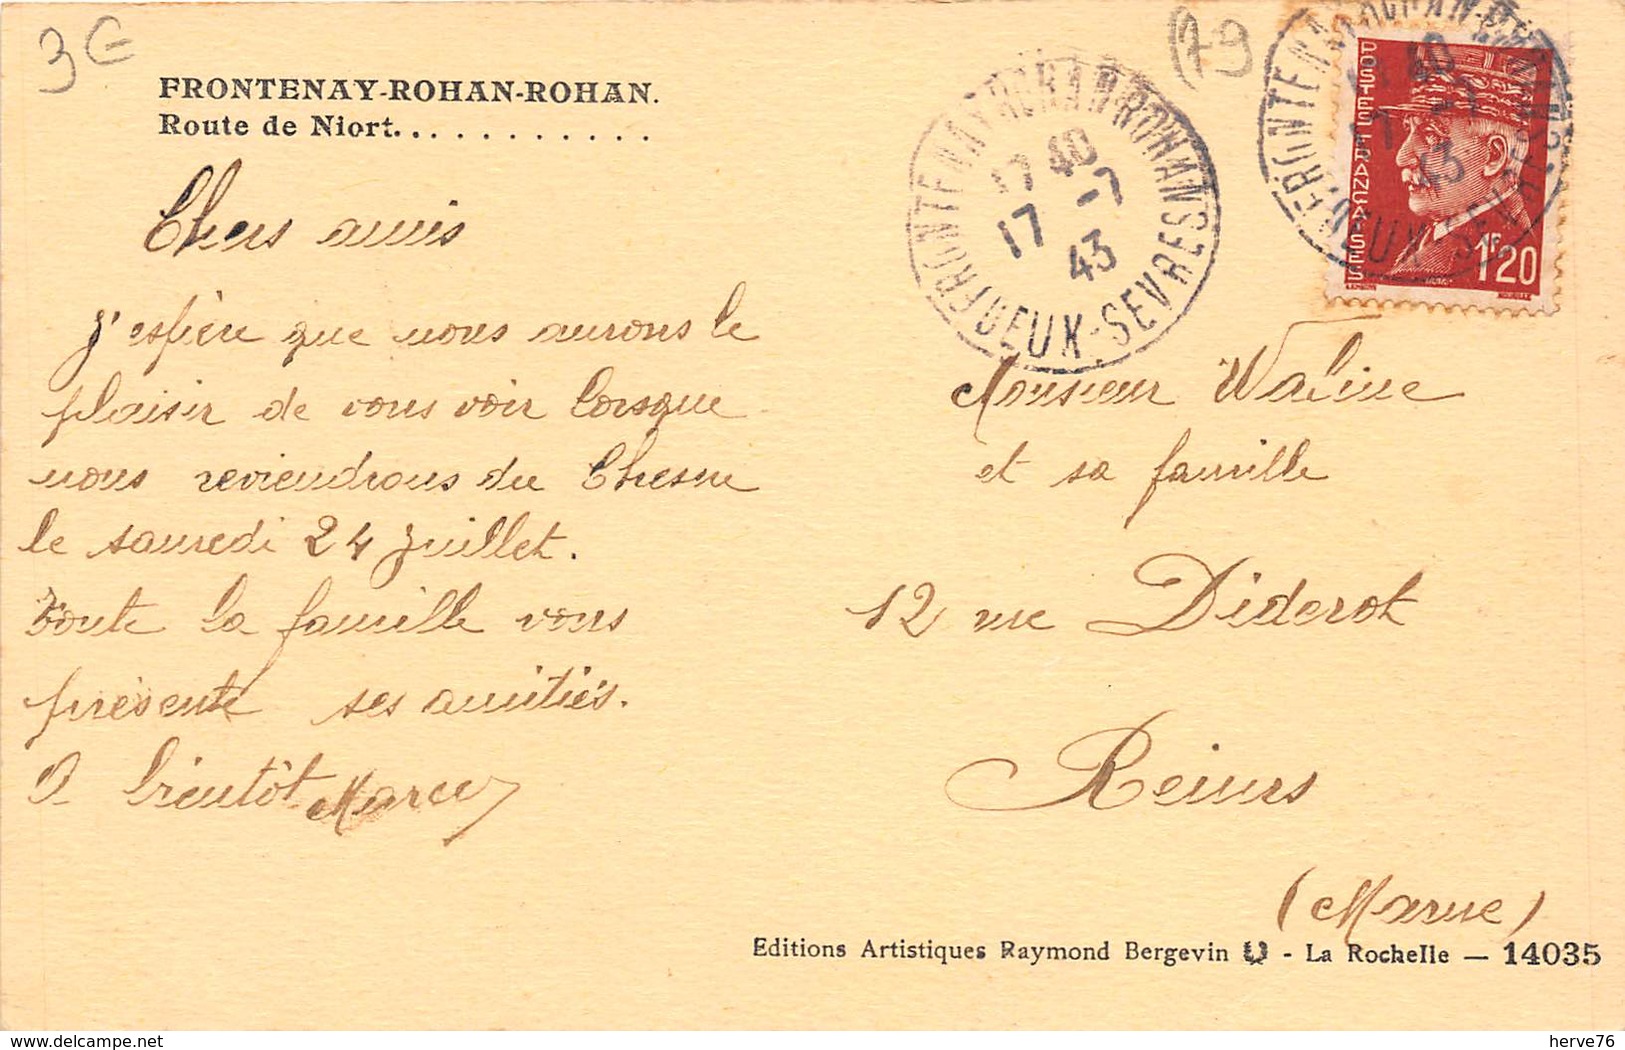 3€
79
FRONTENAY-ROHAN-ROHAN.
Route de Niort............
FRONTENAY-ROHAN-ROHAN
17 40
17 -7
43
DEUX-SEVRES
FRONTENAY-ROHAN-ROHAN
17 40
17 -7
43
DEUX-SEVRES
POSTES FRANÇAISES
1F20
Chers amis
J'espère que nous aurons le
plaisir de vous voir lorsque
nous reviendrons du Chesne
le samedi 24 juillet.
Toute la famille vous
présente ses amitiés.
A bientôt Marcel
Monsieur Waline
et sa famille
12 rue Diderot
Reims
(Marne)
Editions Artistiques Raymond Bergevin - La Rochelle — 14035
www.delcampe.net
herve76